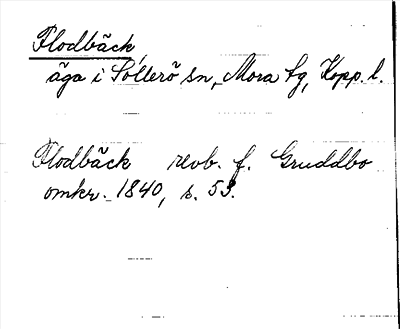 Flodbäck,
äga i Sollerö sn, Mora tg, Kopp. l.
Flodbäck revb. f. Gruddbo
omkr. 1840, s. 53.